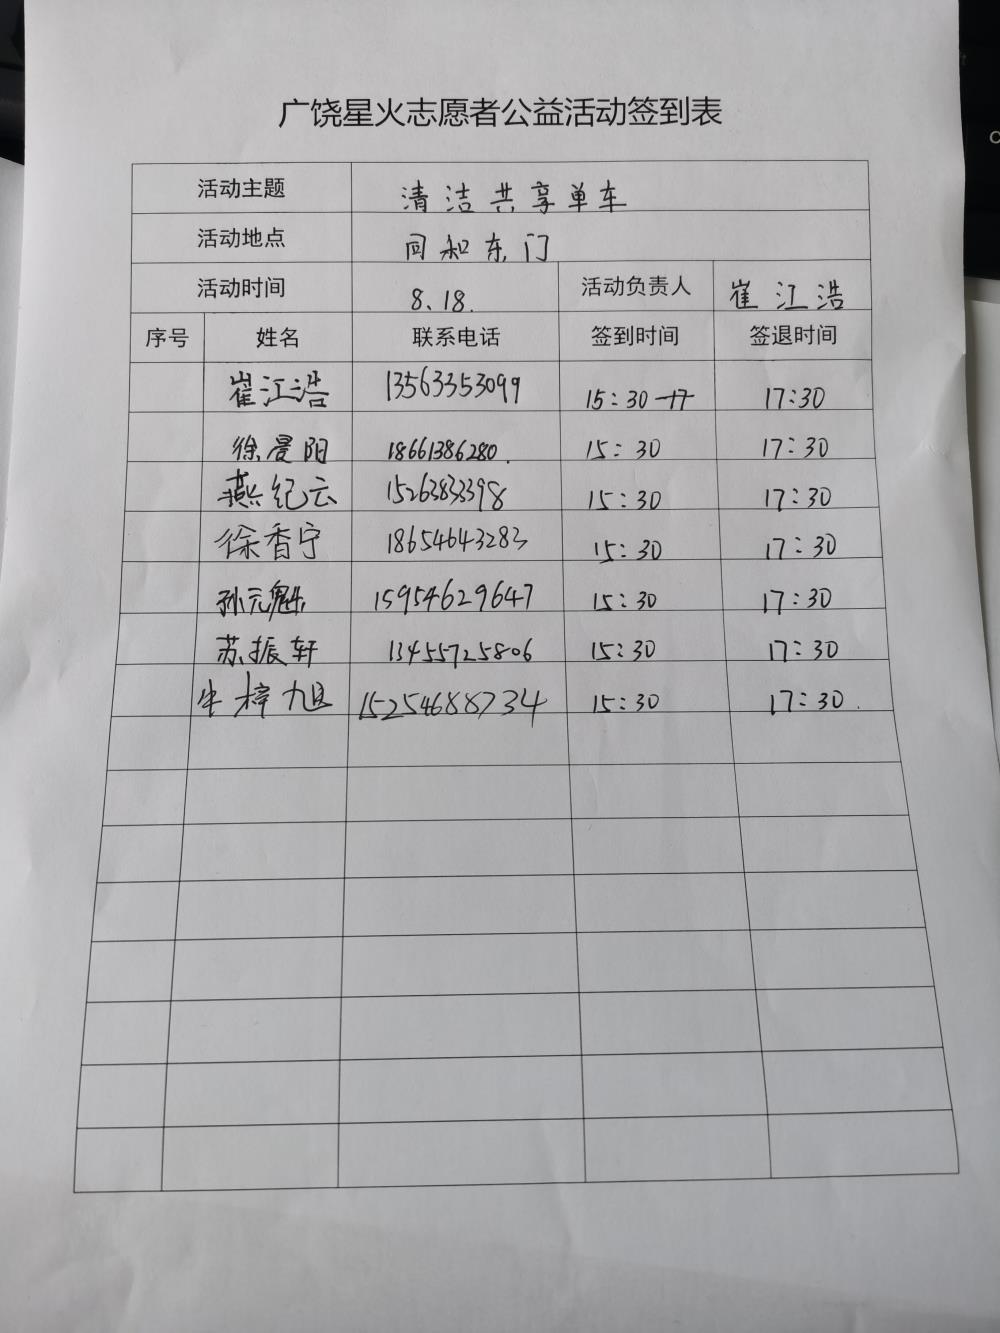 广饶星火志愿者公益活动签到表
活动主题 清洁共享单车
活动地点 同和东门
活动时间 8.18. 活动负责人 崔江浩
序号 姓名 联系电话 签到时间 签退时间
崔江浩 13563353099 15:30 17:30
徐晨阳 18661386280. 15:30 17:30
燕纪云 15263833398 15:30 17:30
徐香宁 18654643283 15:30 17:30
孙元魁 15954629647 15:30 17:30
苏振轩 13455725806 15:30 17:30
牛梓旭 15254688734 15:30 17:30.